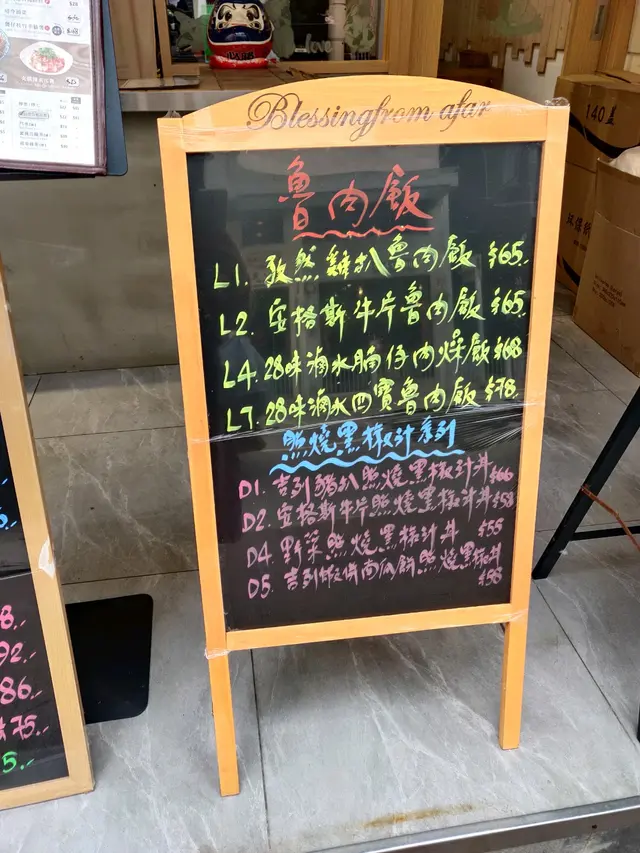 Blessingfrom afar
魯肉飯
L1. 孜然雞扒魯肉飯 $65.
L2. 安格斯牛片魯肉飯 $65.
L4. 28味滷水腩仔肉燥飯 $68
L7. 28味滷水四寶魯肉飯 $78.
照燒黑椒汁系列
D1. 吉列豬扒照燒黑椒汁丼 $66
D2. 安格斯牛片照燒黑椒汁丼 $58
D4. 野菜照燒黑椒汁丼 $55
D5. 吉列蝦餅南瓜餅照燒黑椒丼 $56
140蓋
love
8.
92.
86.
75.
5.